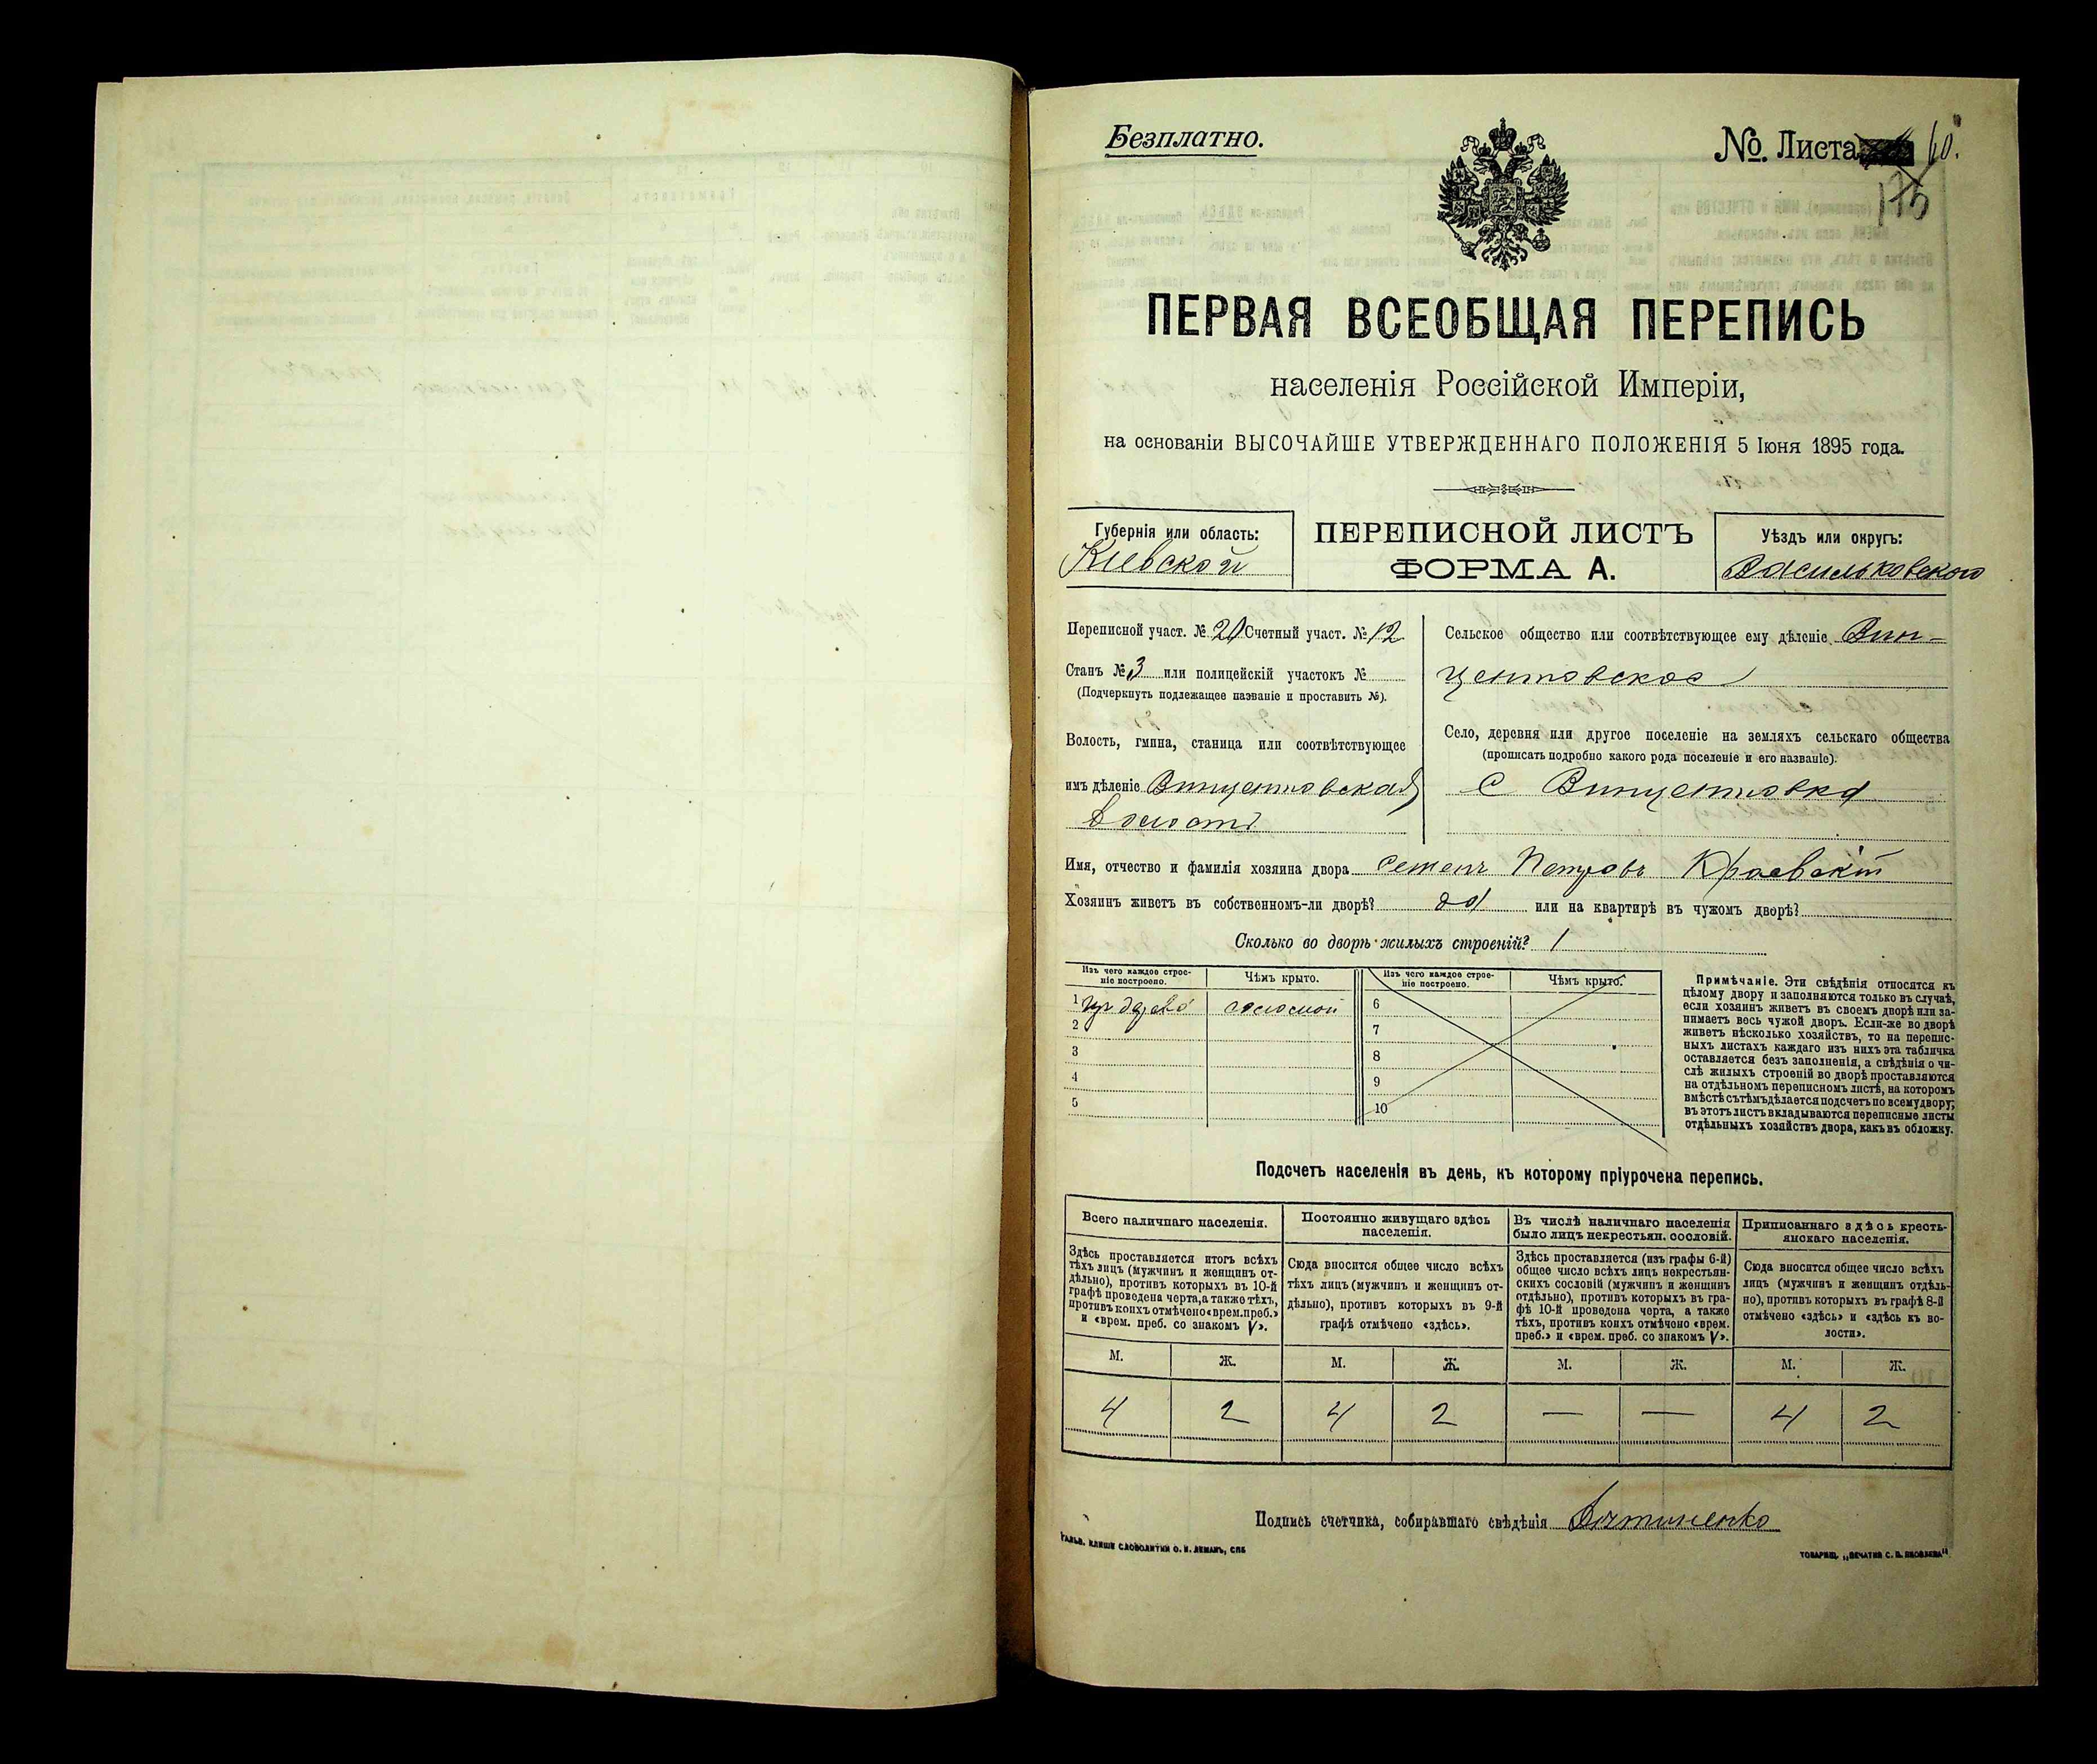 Безплатно.
№. Листа 60.
175
ПЕРВАЯ ВСЕОБЩАЯ ПЕРЕПИСЬ
населенія Россійской Имперіи,
на основаніи ВЫСОЧАЙШЕ УТВЕРЖДЕННАГО ПОЛОЖЕНІЯ 5 Іюня 1895 года.
Губернія или область:
Кіевской
ПЕРЕПИСНОЙ ЛИСТЪ
ФОРМА А.
Уѣздъ или округъ:
Васильковского
Переписной участ. № 20 Счетный участ. № 12
Станъ № 3 или полицейскій участокъ №
(Подчеркнуть подлежащее названіе и проставить №).
Волость, гмина, станица или соотвѣтствующее
имъ дѣленіе Винцентовская
Волость
Сельское общество или соотвѣтствующее ему дѣленіе Вин-
центовское
Село, деревня или другое поселеніе на земляхъ сельскаго общества
(прописать подробно какого рода поселеніе и его названіе).
С Винцентовка
Имя, отчество и фамилія хозяина двора Семенъ Петровъ Краевскій
Хозяинъ живетъ въ собственномъ-ли дворѣ? да или на квартирѣ въ чужомъ дворѣ?
Сколько во дворѣ жилыхъ строеній? 1
Изъ чего каждое строеніе построено. Чѣмъ крыто. Изъ чего каждое строеніе построено. Чѣмъ крыто.
1 изъ дерева соломой 6
2 7
3 8
4 9
5 10
Примѣчаніе. Эти свѣдѣнія относятся къ
цѣлому двору и заполняются только въ случаѣ,
если хозяинъ живетъ въ своемъ дворѣ или за-
нимаетъ весь чужой дворъ. Если-же во дворѣ
живетъ нѣсколько хозяйствъ, то на перепис-
ныхъ листахъ каждаго изъ нихъ эта табличка
оставляется безъ заполненія, а свѣдѣнія о чи-
слѣ жилыхъ строеній во дворѣ проставляются
на отдѣльномъ переписномъ листѣ, на которомъ
вмѣстѣ съ тѣмъ дѣлается подсчетъ по всему двору;
въ этотъ листъ вкладываются переписные листы
отдѣльныхъ хозяйствъ двора, какъ въ обложку.
Подсчетъ населенія въ день, къ которому пріурочена перепись.
Всего наличнаго населенія.
Здѣсь проставляется итогъ всѣхъ
тѣхъ лицъ (мужчинъ и женщинъ от-
дѣльно), противъ которыхъ въ 10-й
графѣ проведена черта, а также тѣхъ,
противъ коихъ отмѣчено «врем. преб.»
и «врем. преб. со знакомъ V».
Постоянно живущаго здѣсь
населенія.
Сюда вносится общее число всѣхъ
тѣхъ лицъ (мужчинъ и женщинъ от-
дѣльно), противъ которыхъ въ 9-й
графѣ отмѣчено «здѣсь».
Въ числѣ наличнаго населенія
было лицъ некрестьян. сословій.
Здѣсь проставляется (изъ графы 6-й)
общее число всѣхъ лицъ некрестьян-
скихъ сословій (мужчинъ и женщинъ
отдѣльно), противъ которыхъ въ гра-
фѣ 10-й проведена черта, а также
тѣхъ, противъ коихъ отмѣчено «врем.
преб.» и «врем. преб. со знакомъ V».
Приписаннаго здѣсь кресть-
янскаго населенія.
Сюда вносится общее число всѣхъ
лицъ (мужчинъ и женщинъ отдѣль-
но), противъ которыхъ въ графѣ 8-й
отмѣчено «здѣсь» и «здѣсь къ во-
лости».
М. Ж. М. Ж. М. Ж. М. Ж.
4 2 4 2 — — 4 2
Подпись счетчика, собиравшаго свѣдѣнія
ГАЛЬВ. КЛИШЕ СЛОВОЛИТНИ О. И. ЛЕМАНЪ, СПБ
ТОВАРИЩ. „ПЕЧАТНЯ С. П. ЯКОВЛЕВА“